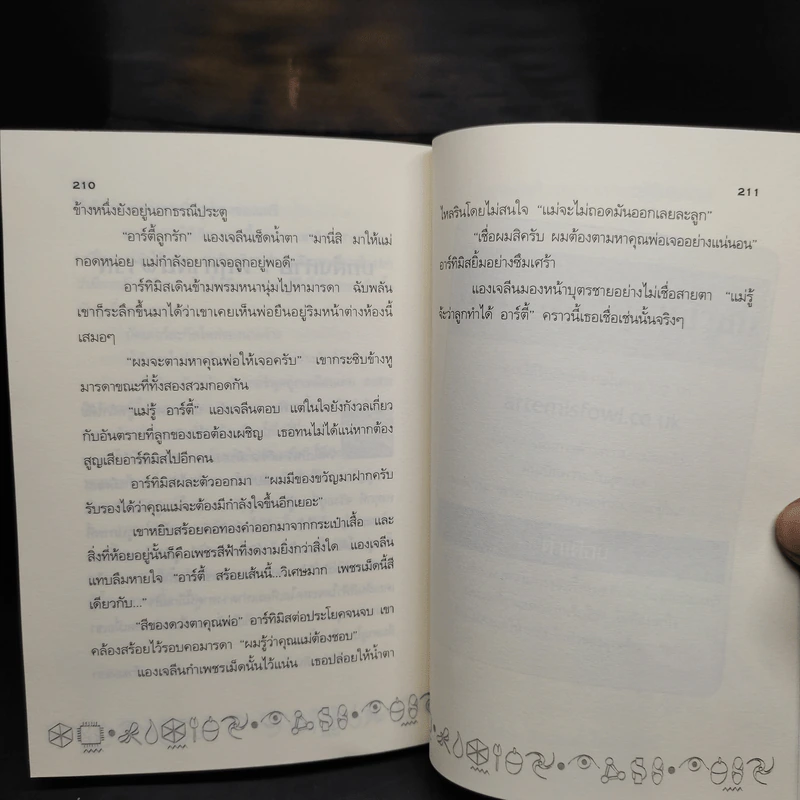 210
ข้างหนึ่งยังอยู่นอกธรณีประตู
“อาร์ตี้ลูกรัก” แองเจลีนเช็ดน้ำตา “มานี่สิ มาให้แม่
กอดหน่อย แม่กำลังอยากเจอลูกอยู่พอดี”
อาร์ทิมิสเดินข้ามพรมหนานุ่มไปหามารดา ฉับพลัน
เขาก็ระลึกขึ้นมาได้ว่าเขาเคยเห็นพ่อยืนอยู่ริมหน้าต่างห้องนี้
เสมอๆ
“ผมจะตามหาคุณพ่อให้เจอครับ” เขากระซิบข้างหู
มารดาขณะที่ทั้งสองสวมกอดกัน
“แม่รู้ อาร์ตี้” แองเจลีนตอบ แต่ในใจยังกังวลเกี่ยว
กับอันตรายที่ลูกของเธอต้องเผชิญ เธอทนไม่ได้แน่หากต้อง
สูญเสียอาร์ทิมิสไปอีกคน
อาร์ทิมิสผละตัวออกมา “ผมมีของขวัญมาฝากครับ
รับรองได้ว่าคุณแม่จะต้องมีกำลังใจขึ้นอีกเยอะ”
เขาหยิบสร้อยคอทองคำออกมาจากกระเป๋าเสื้อ และ
สิ่งที่ห้อยอยู่นั้นก็คือเพชรสีฟ้าที่งดงามยิ่งกว่าสิ่งใด แองเจลีน
แทบลืมหายใจ “อาร์ตี้ สร้อยเส้นนี้...วิเศษมาก เพชรเม็ดนี้สี
เดียวกับ...”
“สีของดวงตาคุณพ่อ” อาร์ทิมิสต่อประโยคจนจบ เขา
คล้องสร้อยไว้รอบคอมารดา “ผมรู้ว่าคุณแม่ต้องชอบ”
แองเจลีนกำเพชรเม็ดนั้นไว้แน่น เธอปล่อยให้น้ำตา
211
ไหลรินโดยไม่สนใจ “แม่จะไม่ถอดมันออกเลยละลูก”
“เชื่อผมสิครับ ผมต้องตามหาคุณพ่อเจออย่างแน่นอน”
อาร์ทิมิสยิ้มอย่างซึมเศร้า
แองเจลีนมองหน้าบุตรชายอย่างไม่เชื่อสายตา “แม่รู้
จ้ะว่าลูกทำได้ อาร์ตี้” คราวนี้เธอเชื่อเช่นนั้นจริงๆ